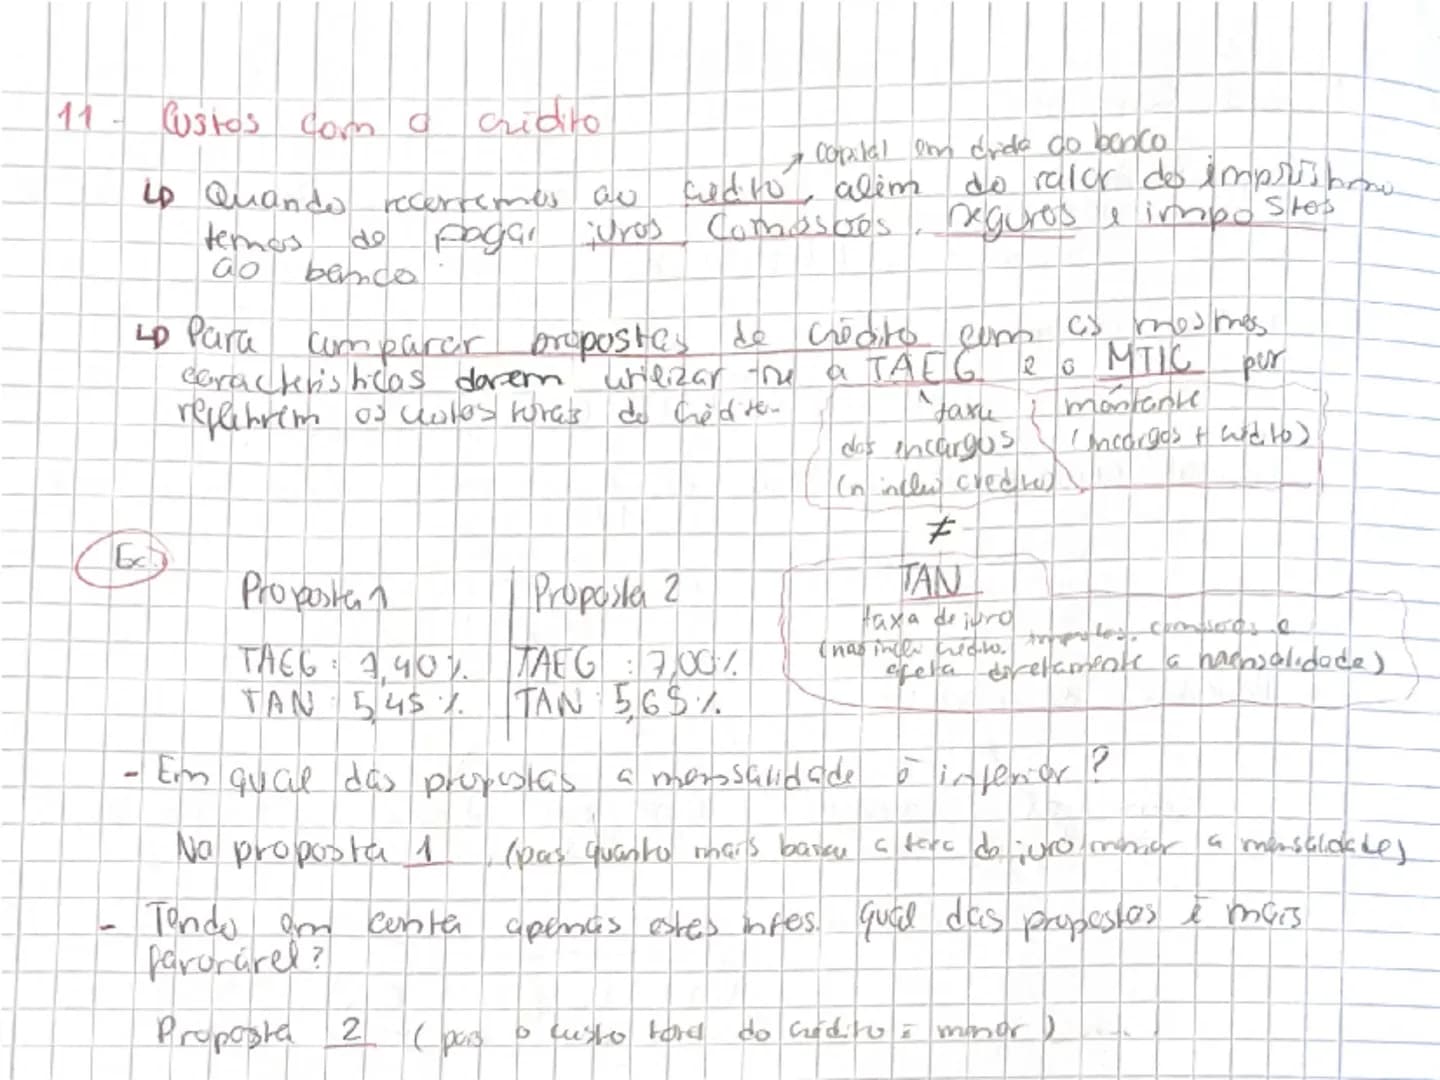 11 - Custos com o crédito
↗ capital em dívida do banco
↳ Quando recorremos ao crédito, além do valor do empréstimo
temos de pagar juros, comissões, seguros e impostos
ao banco.
↳ Para comparar propostas de crédito com as mesmas
características devem utilizar-se a TAEG e o MTIC por
refletirem os custos totais do crédito.
taxa
dos encargos
(n inclui crédito)
montante
(encargos + crédito)
≠
TAN
taxa de juro
(não inclui crédito, impostos, comissões e
afeta diretamente a mensalidade)
Ex:
Proposta 1 | Proposta 2
TAEG: 7,40% | TAEG: 7,00%
TAN: 5,45% | TAN: 5,65%
- Em qual das propostas a mensalidade é inferior?
Na proposta 1, (pois quanto mais baixa a taxa de juro menor a mensalidade)
- Tendo em conta apenas estes infos. qual das propostas é mais
favorável?
Proposta 2 (pois o custo total do crédito é menor)